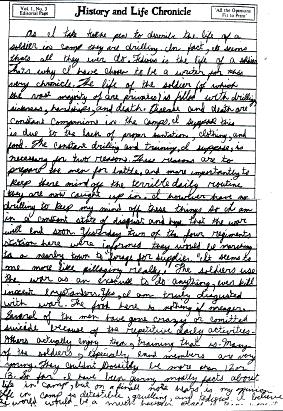 Vol. 1, No. 3
Editorial Page
History and Life Chronicle
"All the Opinions
Fit to Print"
As I take to the pen to describe the life of a
soldier in camp they are drilling. In fact, it seems
thats all they ever do. This is the life of a soldier
thats why I have chosen to be a writer for this
very chronicle. The life of the soldier (of which
the vast majority of are privates) is filled with drilling
sickness, hardships, and death. Disease and death are
constant companions in the camps. I suppose this
is due to the lack of proper sanitation, clothing, and
food. The constant drilling and training, I suppose, is
necessary for two reasons. These reasons are to
prepare the men for battle, and more importantly to
keep there mind off the terrible daily routine
they are now caught up in. I however have no
drilling to keep my mind off these things so I am
in a constant state of disgust and hope that the war
will end soon. Yesterday two of the four regiments
station here were informed they would be marching
to a nearby town to "forage for supplies." It seems to
me more like pillaging really. The soldiers use
the war as an excuse to do anything, even kill
innocent. Yes, I am truly disgusted
with war. The food here is nothing if meager.
Several of the men have gone crazy or comitted
suicide because of the repetitive daily activities.
Others actually enjoy the training that is. Many
of the soldiers, especially band members are very
young. They couldn't possibly be more than 12 or
13. So far I have been giving mostly facts about
life in camp, but on a final note my opinion
life in camp is detestible, and I believe
the world would be a much better place if